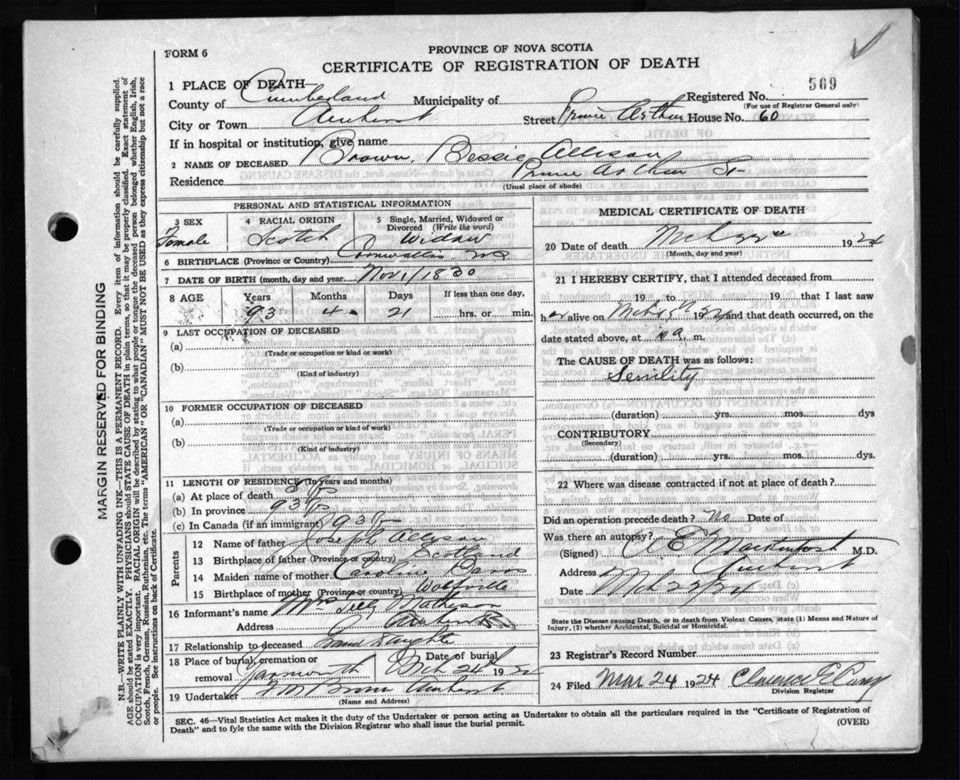 FORM 6
PROVINCE OF NOVA SCOTIA
CERTIFICATE OF REGISTRATION OF DEATH
1 PLACE OF DEATH
569
County of Cumberland Municipality of Registered No.
(For use of Registrar General only)
City or Town Amherst Street Prince Arthur House No. 60
If in hospital or institution, give name
2 NAME OF DECEASED Brown, Bessie Allison
Residence Prince Arthur St
(Usual place of abode)
PERSONAL AND STATISTICAL INFORMATION
3 SEX 4 RACIAL ORIGIN 5 Single, Married, Widowed or Divorced (Write the word)
Female Scotch Widow
6 BIRTHPLACE (Province or Country) Cornwallis NS
7 DATE OF BIRTH (month, day and year) Nov 1/1830
8 AGE Years Months Days If less than one day,
93 4 21 hrs. or min.
9 LAST OCCUPATION OF DECEASED
(a)
(Trade or occupation or kind or work)
(b)
(Kind of industry)
10 FORMER OCCUPATION OF DECEASED
(a)
(Trade or occupation or kind or work)
(b)
(Kind of industry)
11 LENGTH OF RESIDENCE (In years and months)
(a) At place of death
(b) In province 93
(c) In Canada (if an immigrant) 93
Parents
12 Name of father Joseph Allison
13 Birthplace of father (Province or country) Scotland
14 Maiden name of mother Caroline
15 Birthplace of mother (Province or country) Wolfville
16 Informant's name Mrs
Address Amherst
17 Relationship to deceased Grand daughter
18 Place of burial, cremation or removal Date of burial
Yarmouth Mch 24th 192
19 Undertaker Amherst
(Name and Address)
MEDICAL CERTIFICATE OF DEATH
20 Date of death Mch 22 1924
(Month, day and year)
21 I HEREBY CERTIFY, that I attended deceased from
19 to 19 that I last saw
her alive on 19 and that death occurred, on
date stated above, at m.
The CAUSE OF DEATH was as follows:
Senility
(duration) yrs. mos. dys
CONTRIBUTORY
(Secondary)
(duration) yrs. mos. dys.
22 Where was disease contracted if not at place of death?
Did an operation precede death? No Date of
Was there an autopsy?
(Signed) M.D.
Address Amherst
Date
State the Disease causing Death, or in death from Violent Causes, state (1) Means and Nature of Injury, (2) whether Accidental, Suicidal or Homicidal.
23 Registrar's Record Number
24 Filed Mar 24 1924 Clarence E
Division Registrar
SEC. 46—Vital Statistics Act makes it the duty of the Undertaker or person acting as Undertaker to obtain all the particulars required in the "Certificate of Registration of
Death" and to fyle the same with the Division Registrar who shall issue the burial permit. (OVER)
MARGIN RESERVED FOR BINDING
N.B.—WRITE PLAINLY WITH UNFADING INK—THIS IS A PERMANENT RECORD. Every item of information should be carefully supplied.
AGE should be stated EXACTLY. PHYSICIANS should STATE CAUSE OF DEATH in plain terms, so that it may be properly classified. Exact statement of
OCCUPATION is very important. RACIAL ORIGIN will be described by stating to what people or tongue the deceased person belonged whether English, Irish,
Scotch, French, German, Russian, Ruthenian, etc. The terms "AMERICAN" OR "CANADIAN" MUST NOT BE USED as they express citizenship but not a race
or people. See instructions on back of Certificate.